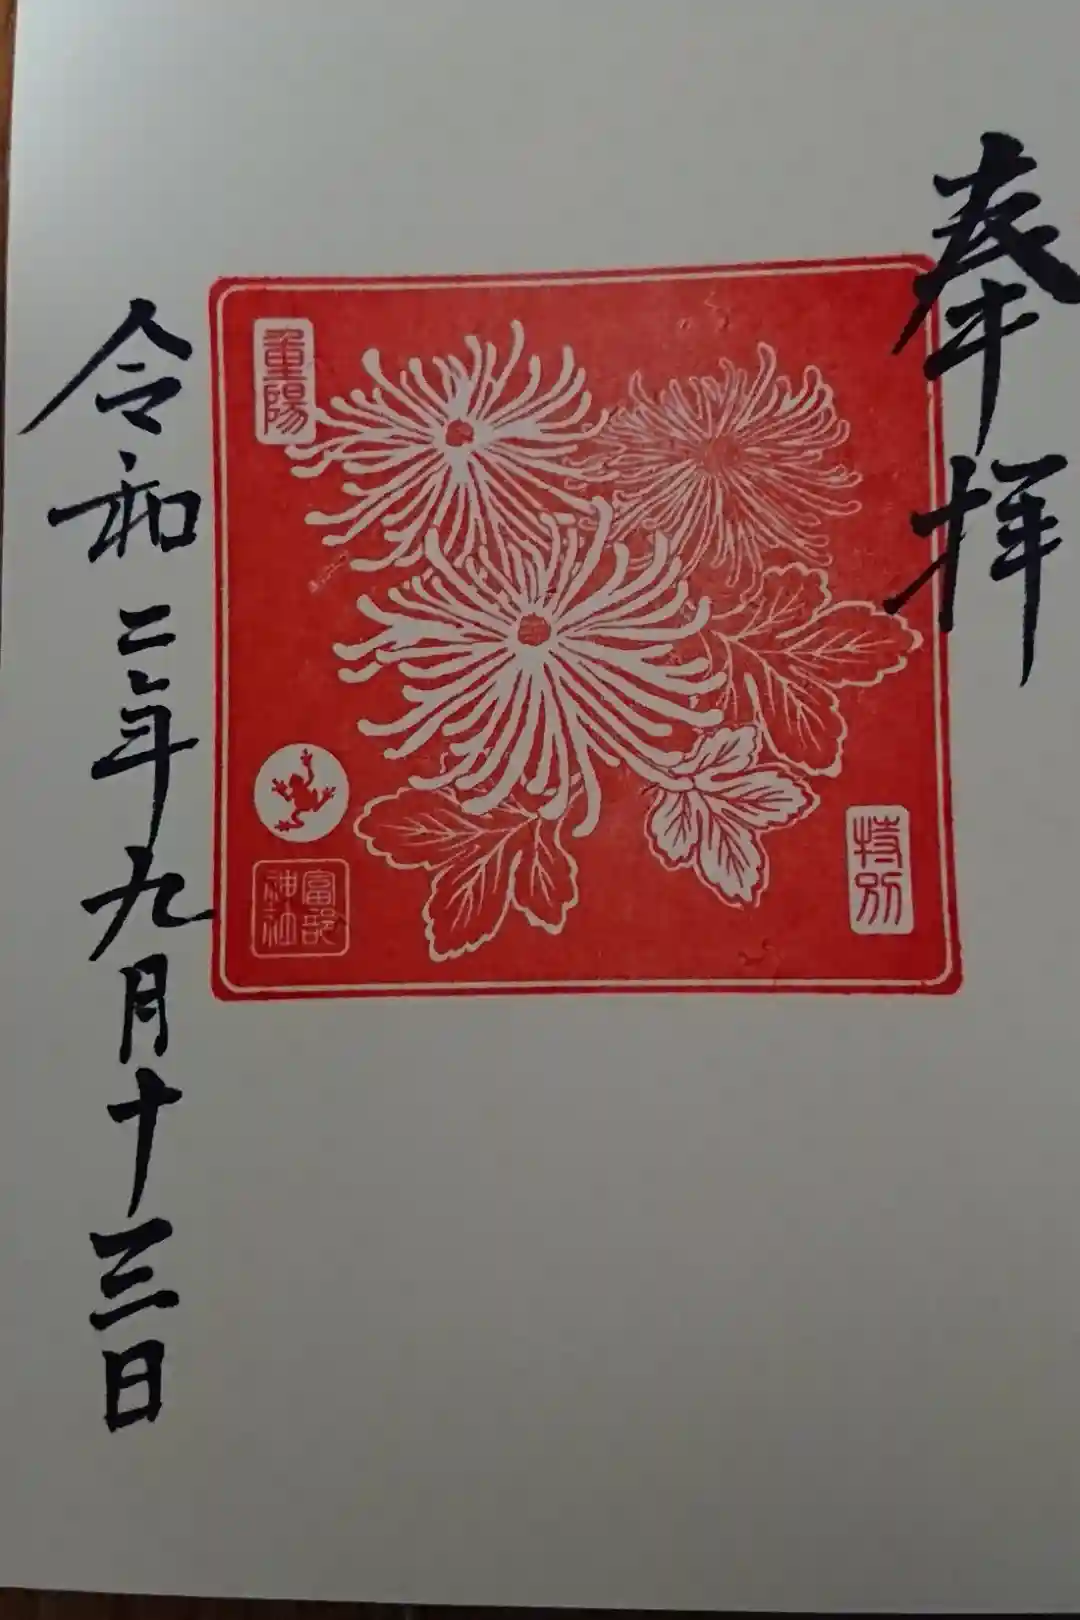 奉拝
重陽
特別
富部神社
令和二年九月十三日